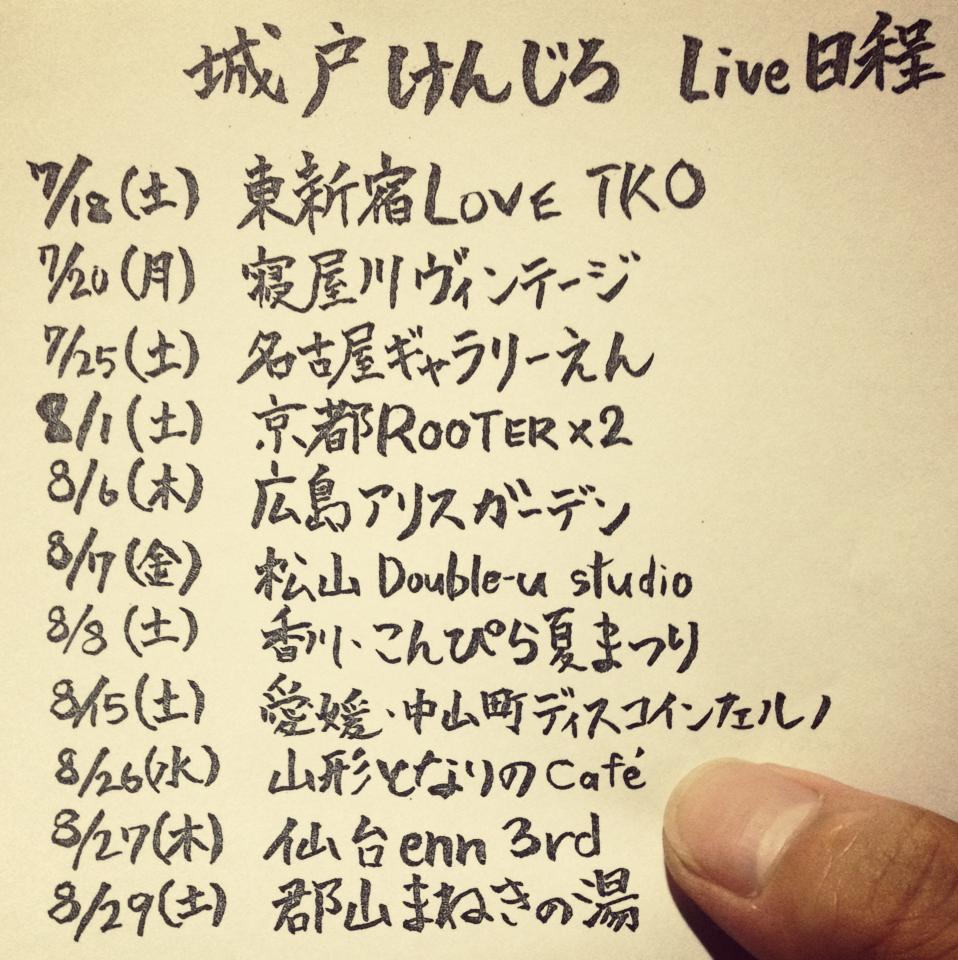 城戸けんじろ Live日程
7/18(土) 東新宿LOVE TKO
7/20(月) 寝屋川ヴィンテージ
7/25(土) 名古屋ギャラリーえん
8/1(土) 京都ROOTER×2
8/6(木) 広島アリスガーデン
8/7(金) 松山 Double-u studio
8/8(土) 香川・こんぴら夏まつり
8/15(土) 愛媛・中山町ディスコインフェルノ
8/26(水) 山形となりのCafé
8/27(木) 仙台enn 3rd
8/29(土) 郡山まねきの湯